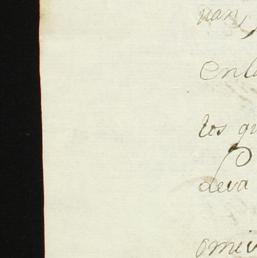 uan,
enl
los qu
deva
omi